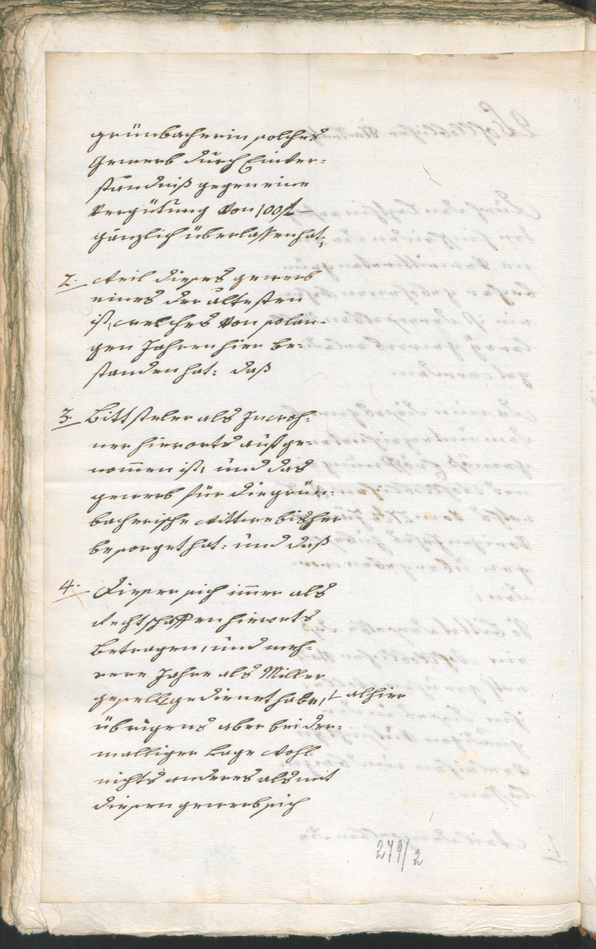 grünbacherin solches
Gewerb durch Einver-
ständniß gegen eine
Vergütung von 100 f
gänzlich überlassen hat;
2. Weil dieses gewerb
eines der ältesten
ist, welches von solan-
gen Jahren hier be-
standen hat: daß
3. Bittsteler als Inwoh-
ner hierorts aufge-
nommen ist, und das
gewerb für die grün-
bacherische Wittwe bisher
besorget hat: und daß
4. Dieser sich immer als
Rechtschaffen hierorts
Betragen, und meh-
rere Jahre als Miller
gesell gedienet habe, alhier
übrigens aber bei der-
malligen Lage wohl
nichts anderes als mit
diesem gewerb sich
279/2